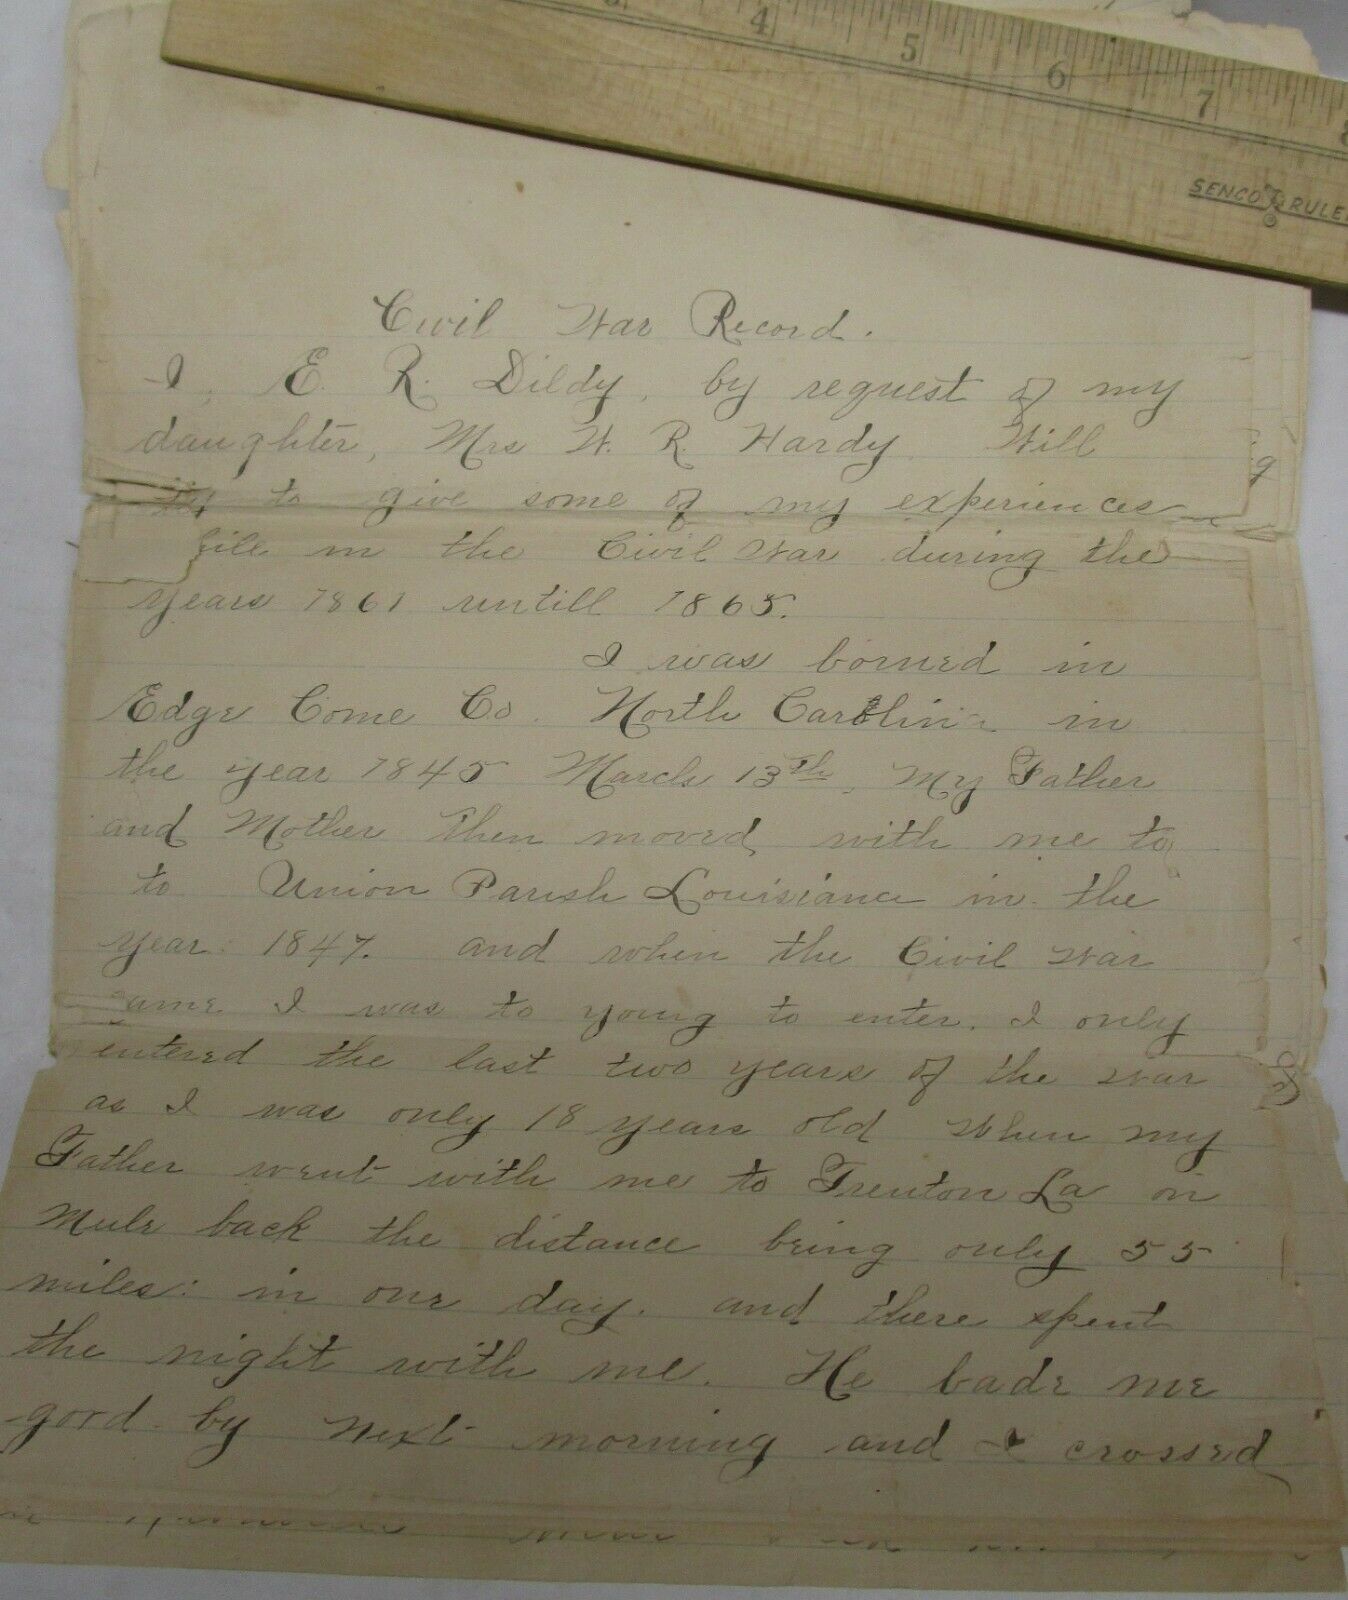 3 4 5 6 7 8
SENCO RULE
Civil War Record.
I, E. R. Dildy, by request of my
daughter, Mrs W. R. Hardy Will
try to give some of my experiences
file in the Civil War during the
years 1861 untill 1865.
I was borned in
Edge Come Co. North Carolina in
the year 1845 March 13th, My Father
and Mother then moved with me to
to Union Parish Louisiana in the
year 1847. and when the Civil War
ame I was to young to enter. I only
entered the last two years of the war
as I was only 18 years old when my
Father went with me to Trenton La on
Mule back the distance being only 55
miles: in one day. and there spent
the night with me. He bade me
good by next morning and I crossed